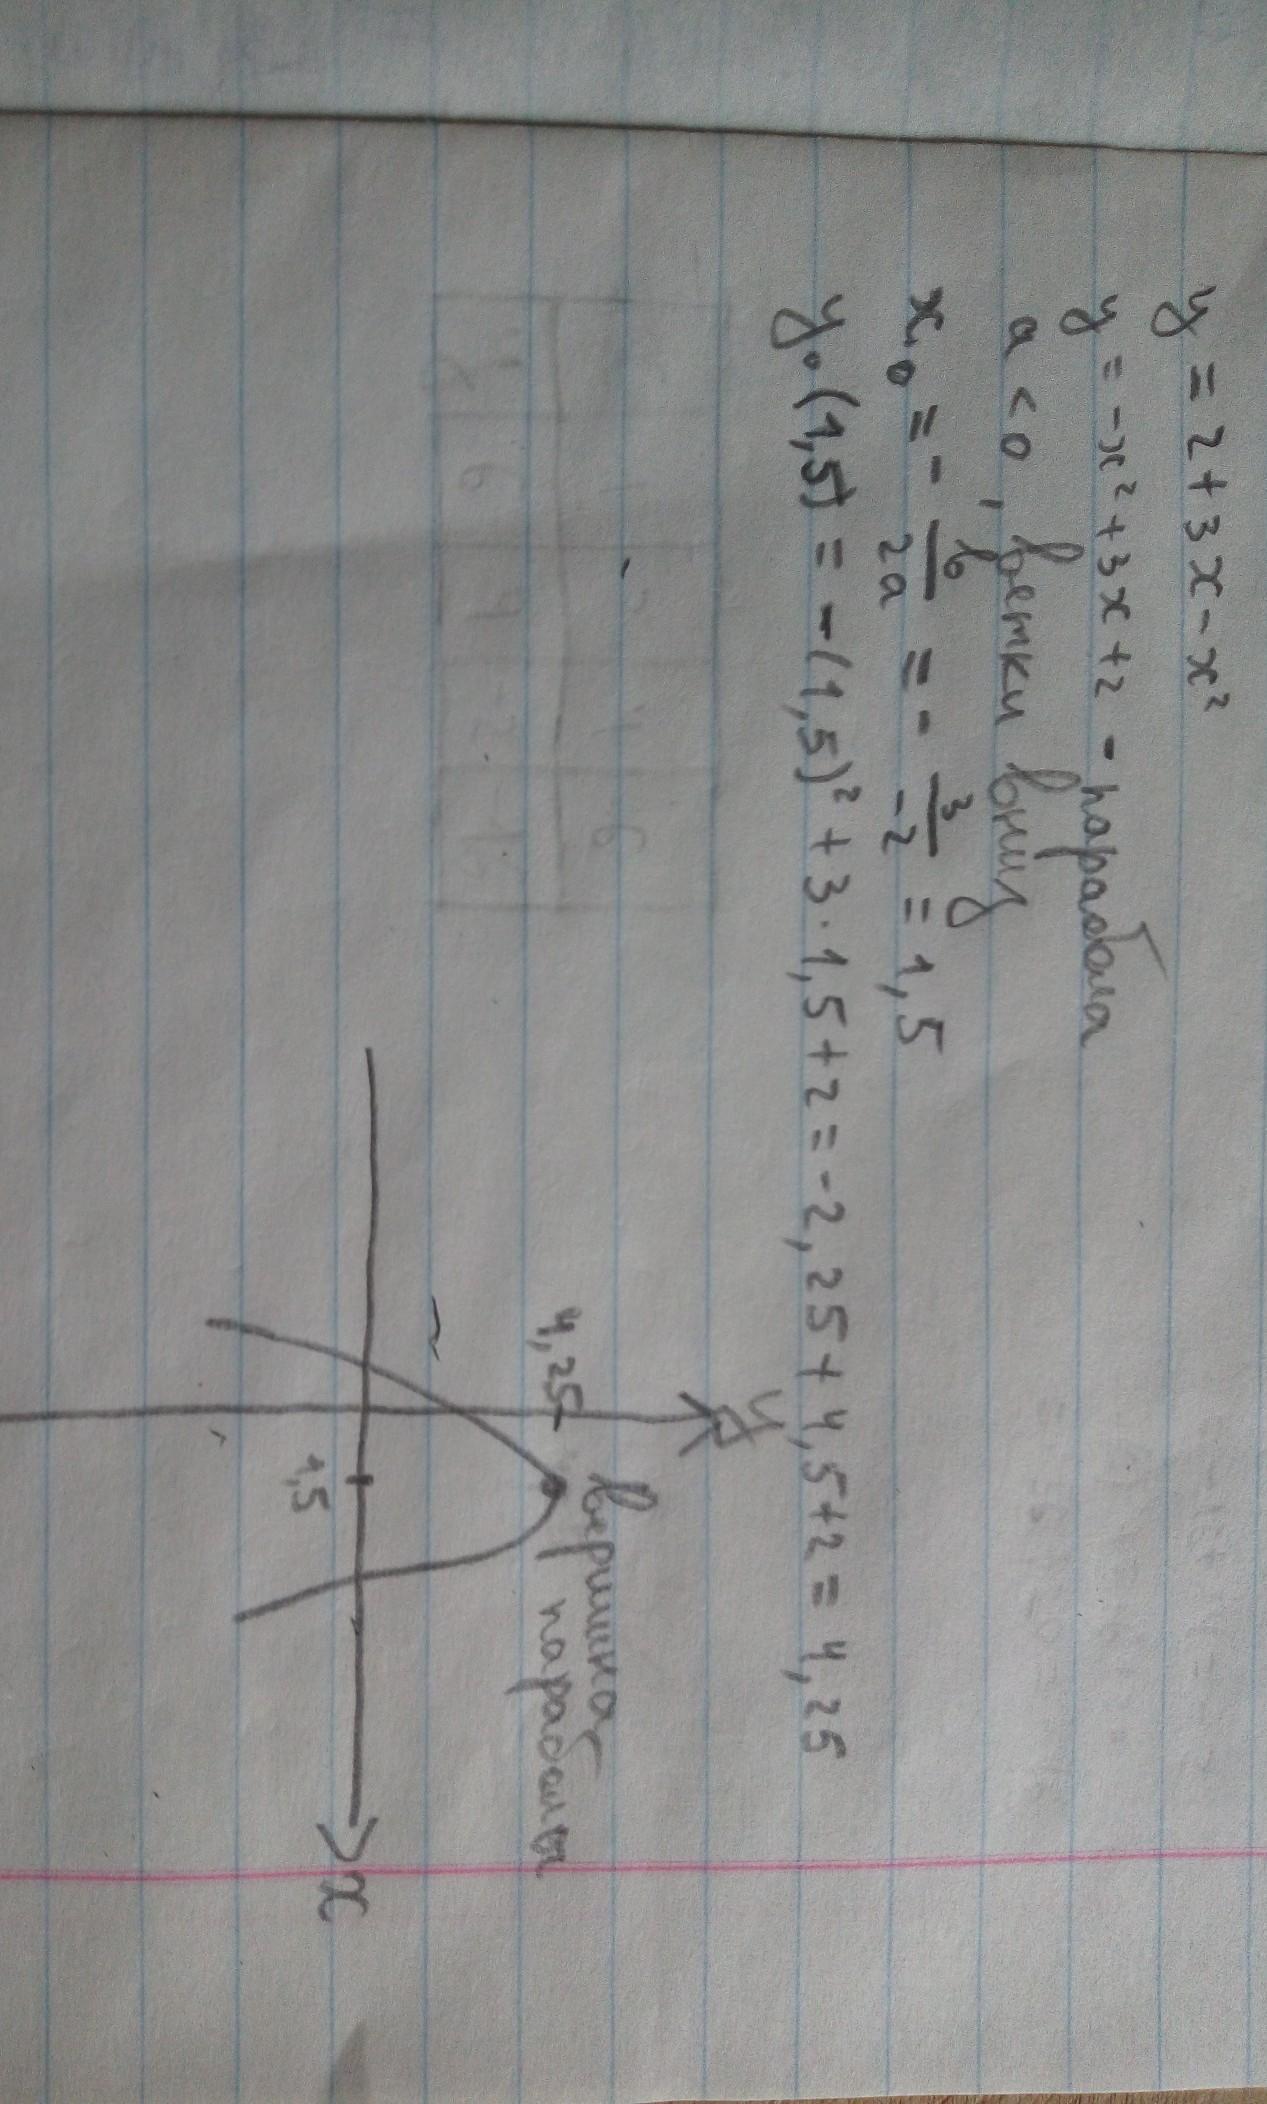 y = 2 + 3x - x²
y = -x² + 3x + 2 - парабола
a < 0, ветки вниз
x₀ = - b/2a = - 3/-2 = 1,5
y₀(1,5) = -(1,5)² + 3 · 1,5 + 2 = -2,25 + 4,5 + 2 = 4,25
y
вершина
параболы
4,25
1,5
x